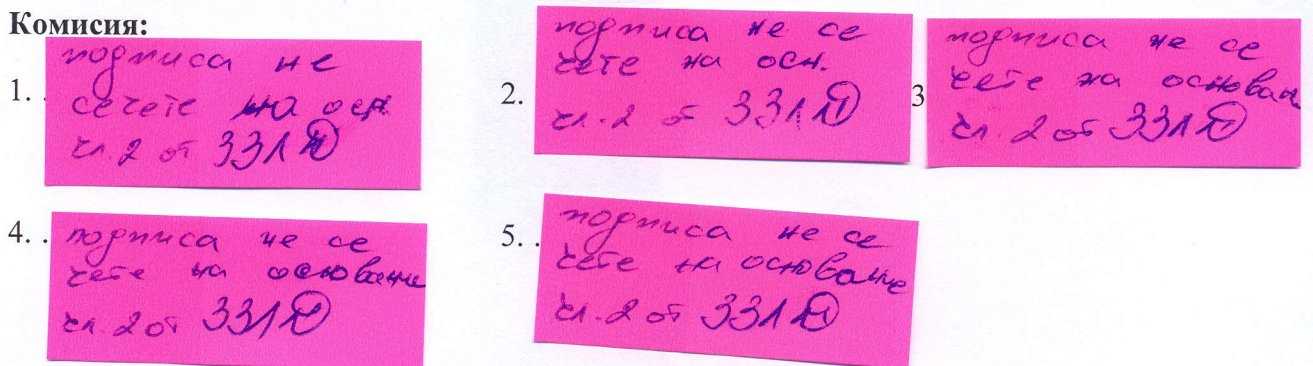 Комисия:
1. .
подписа не
се чете на осн.
чл. 2 от ЗЗЛД
2.
подписа не се
чете на осн.
чл. 2 от ЗЗЛД
3
подписа не се
чете на основан
чл. 2 от ЗЗЛД
4. .
подписа не се
чете на основание
чл. 2 от ЗЗЛД
5. .
подписа не се
чете на основание
чл. 2 от ЗЗЛД